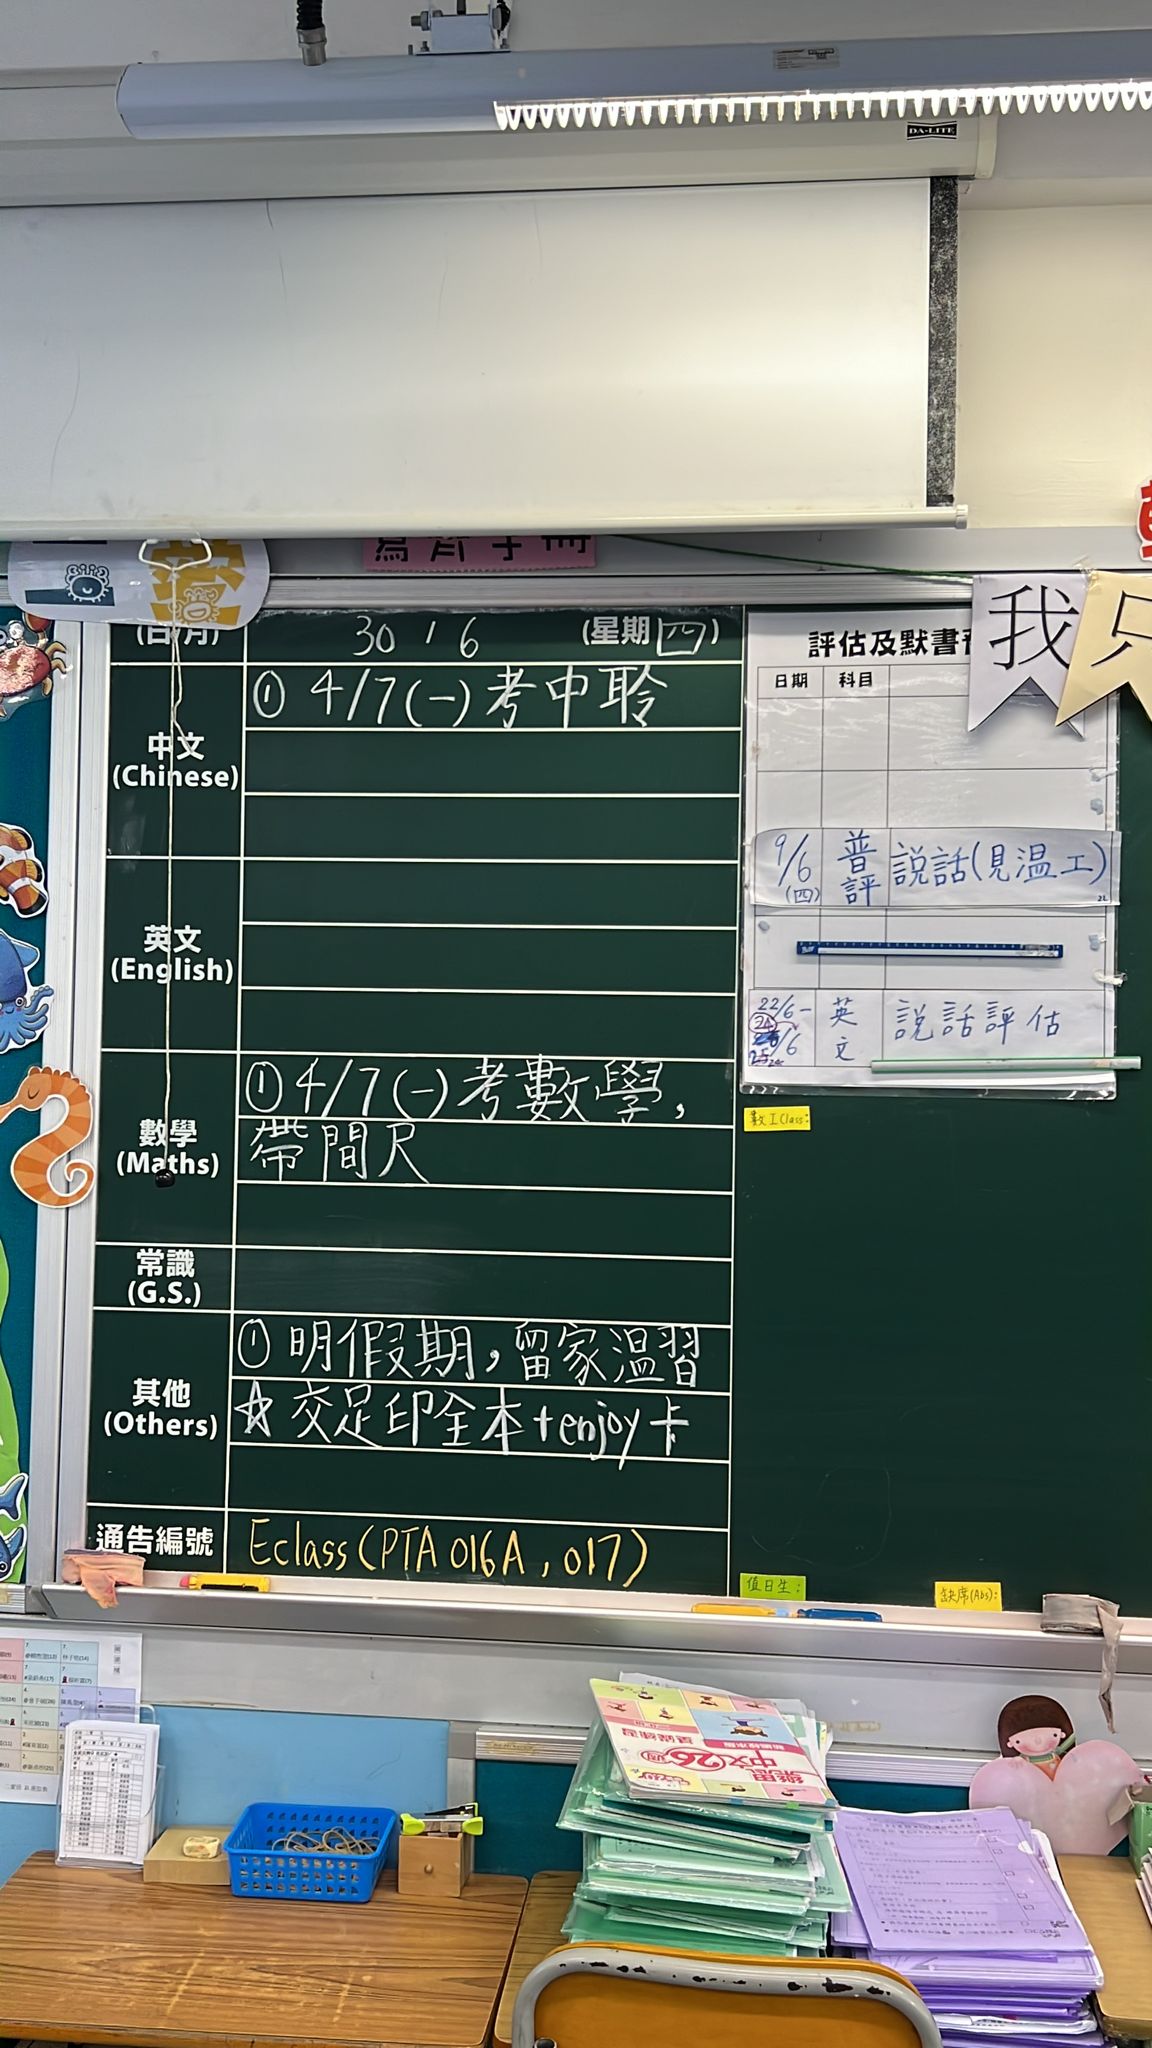 DA-LITE
寫齊手冊
(日/月) 30 / 6 (星期四)
中文
(Chinese)
① 4/7(一)考中聆
英文
(English)
數學
(Maths)
① 4/7(一)考數學,
帶間尺
常識
(G.S.)
其他
(Others)
① 明假期,留家溫習
☆ 交足印全本+enjoy卡
通告編號
Eclass(PTA 016A, 017)
評估及默書
日期 科目
9/6
(四)
普評
說話(見溫工)
22/6-
英文
說話評估
我
只
數工Class:
值日生:
缺席(Abs):
中文